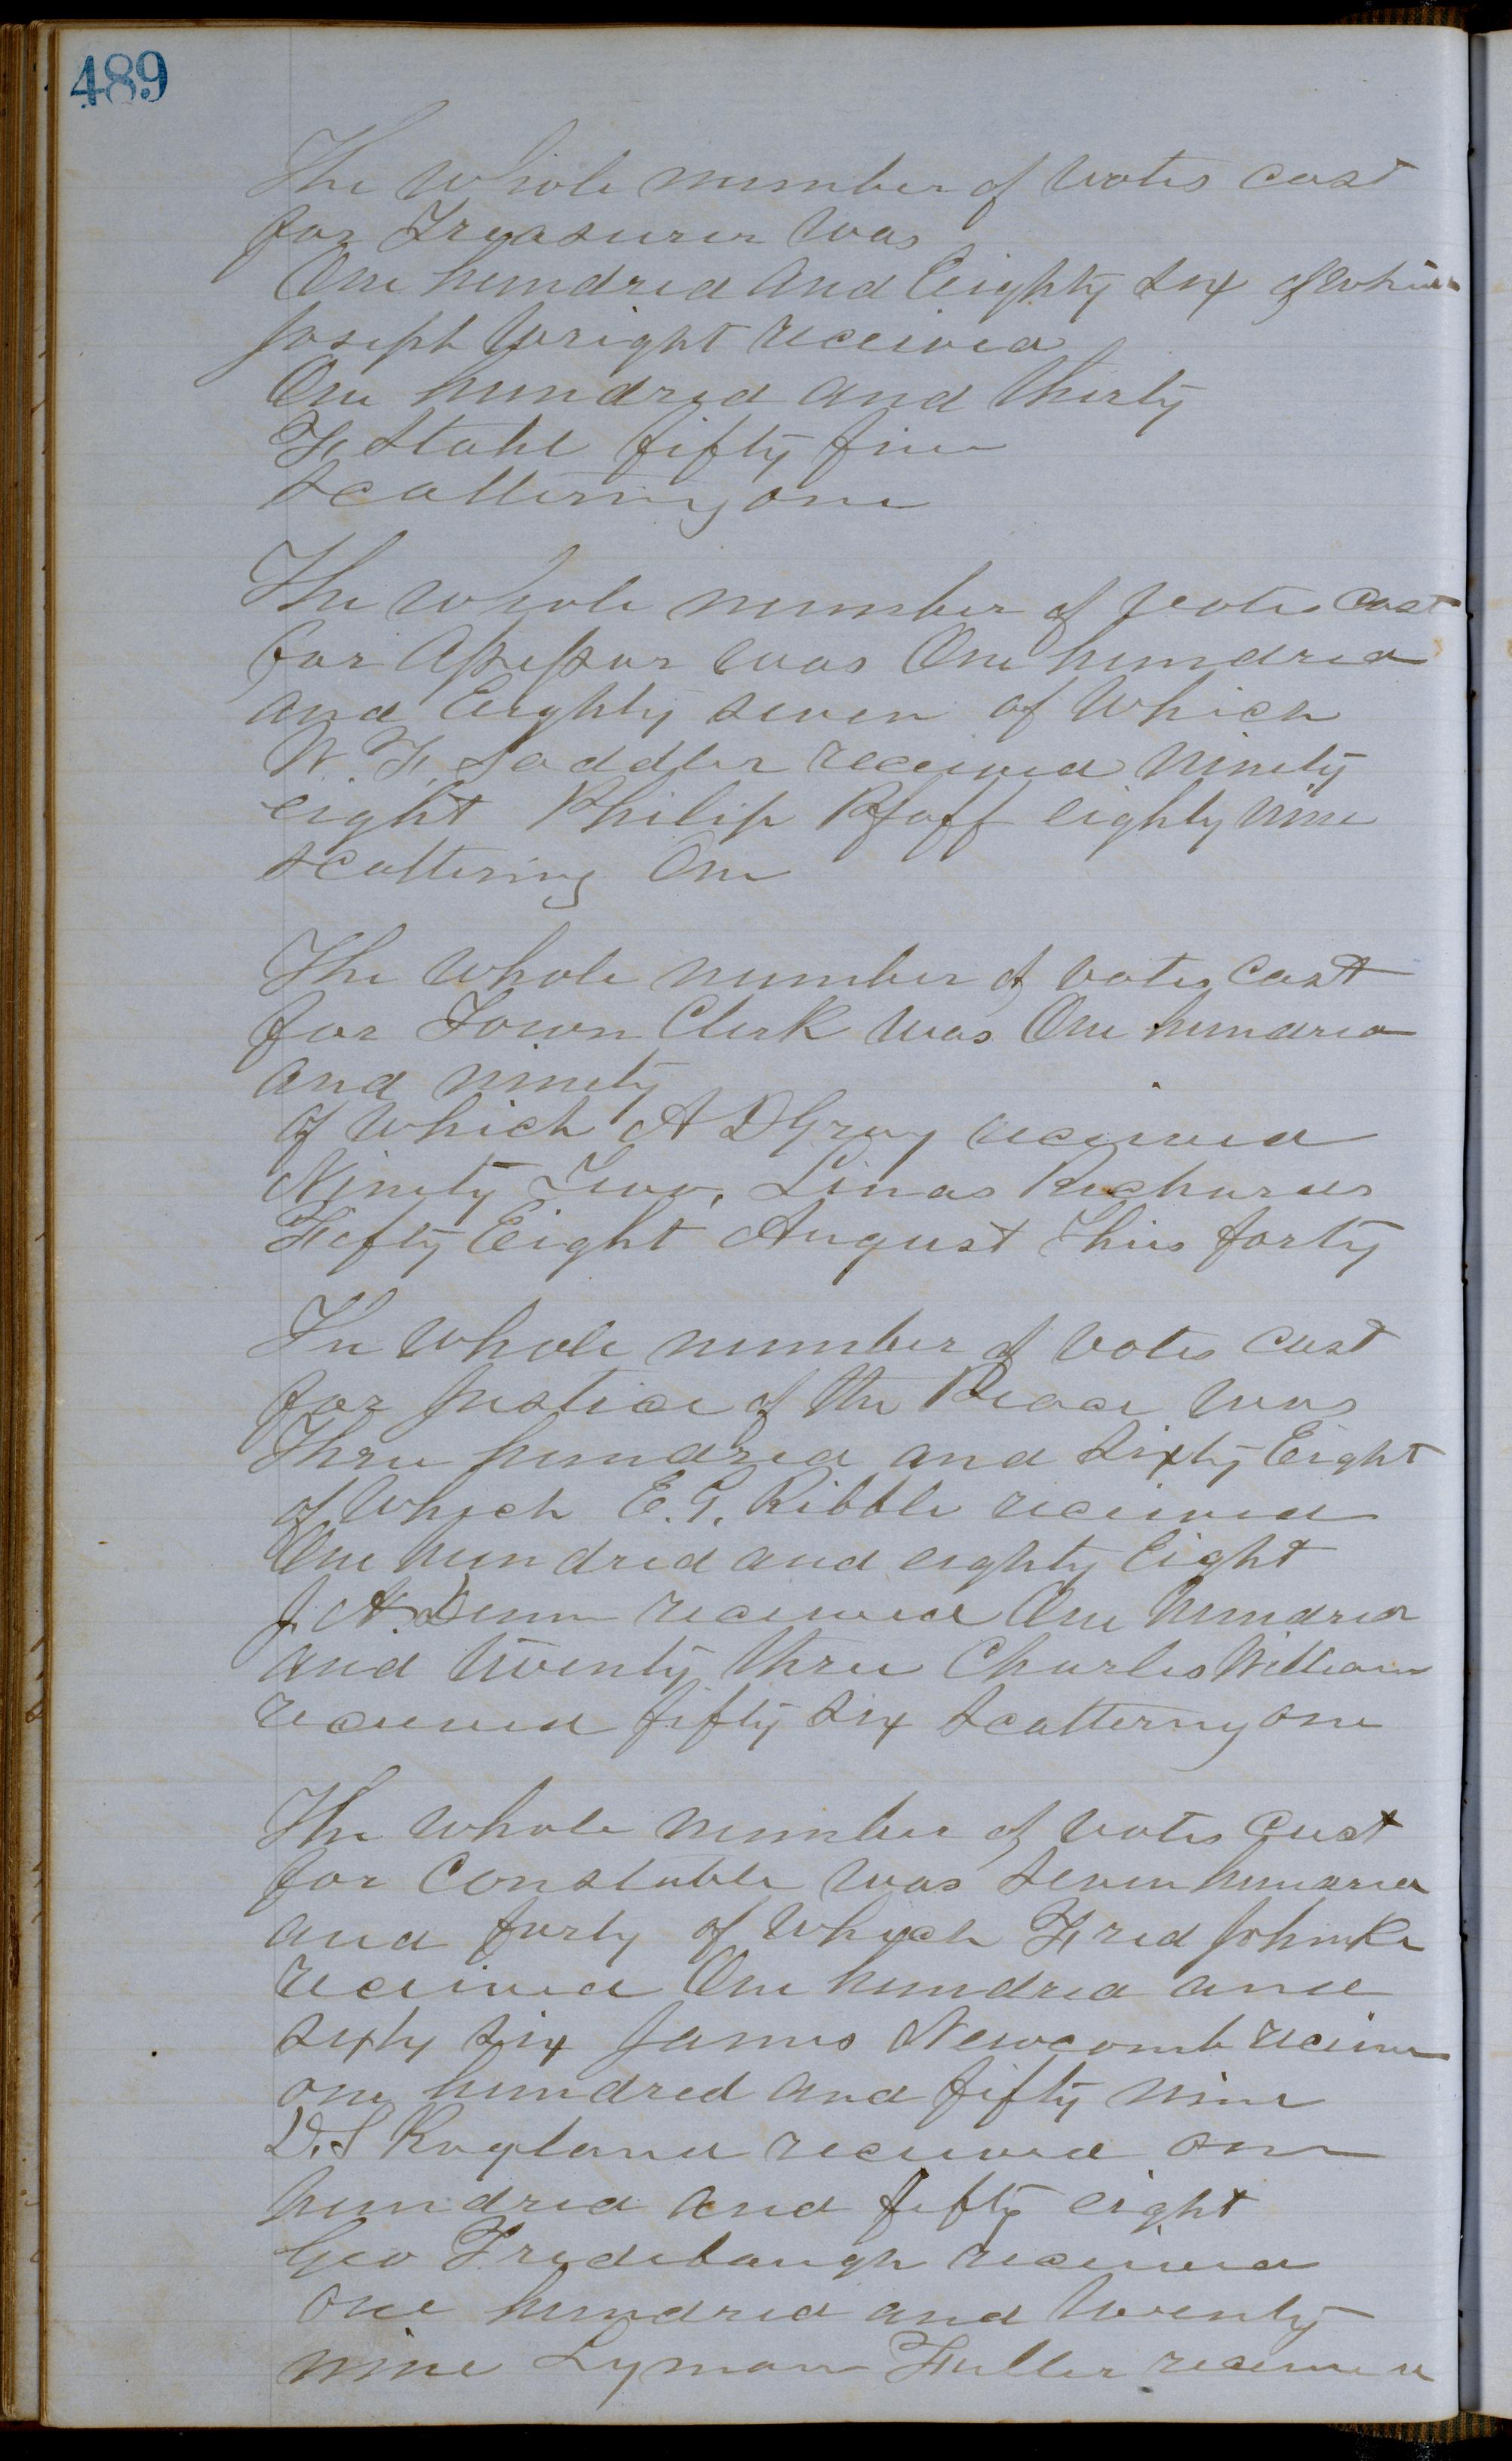 489
The Whole number of votes cast
for Treasurer was
One hundred and Eighty Six of which
Joseph Wright received
One hundred and thirty
F Stahl fifty five
Scattering one
The whole number of votes cast
for Assessor was One hundred
and Eighty seven of which
W. F. Saddler received Ninety
eight Philip Pfaff eighty nine
scattering One
The whole number of votes cast
for Town Clerk was One hundred
and ninety
of which A D Gray received
Ninety Two, Linas Richards
Fifty Eight August Thies forty
The whole number of votes cast
for Justice of the Peace was
Three hundred and Sixty Eight
of which E. G. Kibble received
One hundred and eighty Eight
J. A. Denn received One hundred
and twenty three Charles William
received fifty six Scattering one
The whole number of votes cast
for Constable was Seven hundred
and forty of which Fred Johnke
received One hundred and
sixty six James Newcomb received
one hundred and fifty nine
D. S Ragland received one
hundred and fifty eight
Geo Fredebaugh received
one hundred and twenty
nine Lyman Fuller received